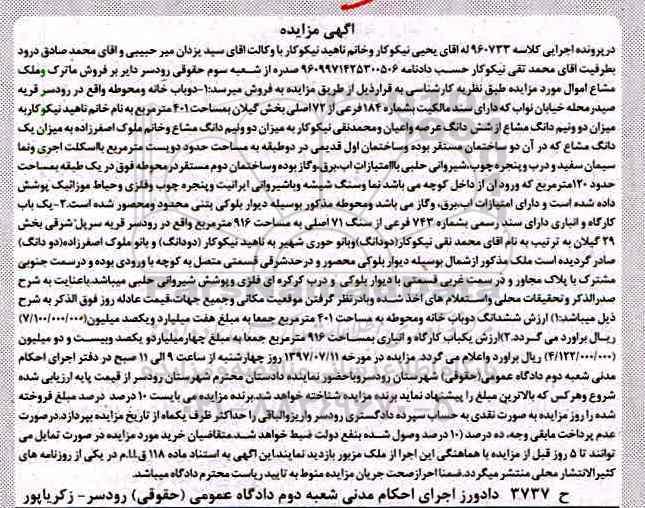 آگهی مزایده
در پرونده اجرایی کلاسه ۹۶۰۷۳۳ له آقای یحیی نیکوکار وخانم ناهید نیکوکار با وکالت آقای سید یزدان میر حبیبی و آقای محمد صادق درود
بطرفیت آقای محمد تقی نیکوکار حسب دادنامه ۹۶۰۹۹۷۱۴۲۵۳۰۰۵۰۶ صدره از شعبه سوم حقوقی رودسر دایر بر فروش ماترک وملک
مشاع اموال مورد مزایده طبق نظریه کارشناسی به قرارذیل از طریق مزایده به فروش میرسد:۱-دوباب خانه ومحوطه واقع در رودسر قریه
صیدرمحله خیابان نواب که دارای سند مالکیت بشماره ۱۸۴ فرعی از ۷۲ اصلی بخش گیلان بمساحت ۴۰۱ مترمربع به نام خانم ناهید نیکوکار به
میزان دو ونیم دانگ مشاع از شش دانگ عرصه واعیان ومحمدتقی نیکوکار به میزان دو ونیم دانگ مشاع وخانم ملوک اصغرزاده به میزان یک
دانگ مشاع که در آن دو ساختمان مستقر بوده وساختمان اول قدیمی در دوطبقه به مساحت حدود دویست مترمربع بااسکلت اجری ونما
سیمان سفید و درب وپنجره چوب.شیروانی حلبی باامتیازات اب.برق.وگاز بوده وساختمان دوم مستقر درمحوطه فوق در یک طبقه بمساحت
حدود ۱۲۰مترمربع که ورود ان از داخل کوچه می باشد نما وسنگ شیشه وباشیروانی ایرانیت وپنجره چوب وفلزی وحیاط موزائیک پوشش
داده شده است و دارای امتیازات اب،برق، وگاز می باشد ومحوطه مذکور بوسیله دیوار بلوکی بتنی محدود ومحصور شده است.۲-یک باب
کارگاه و انباری دارای سند رسمی بشماره ۷۴۳ فرعی از سنگ ۷۱ اصلی به مساحت ۹۱۶ مترمربع واقع در رودسر قریه سرپل شرقی بخش
۲۹ گیلان به ترتیب به نام آقای محمد تقی نیکوکار(دودانگ)وبانو حوری شهیر به ناهید نیکوکار (دودانگ) و بانو ملوک اصغرزاده(دو دانگ)
صادر گردیده است ملک مذکور ازشمال بوسیله دیوار بلوکی محصور و درحدشرقی قسمتی متصل به کوچه با ورودی بوده و درسمت جنوبی
مشترک با پلاک مجاور و در سمت غربی قسمتی با دیوار بلوکی و درب کرکره ای فلزی وپوشش شیروانی حلبی میباشد.باعنایت به شرح
صدرالذکر و تحقیقات محلی واستعلام های اخذ شده وبادرنظر گرفتن موقعیت مکانی وجمیع جهات،قیمت عادله روز فوق الذکر به شرح
ذیل میباشد:۱) ارزش ششدانگ دوباب خانه ومحوطه به مساحت ۴۰۱ مترمربع جمعا به مبلغ هفت میلیارد ویکصد میلیون(۷/۱۰۰/۰۰۰/۰۰۰)
ریـال برآورد می گردد.۲)ارزش یکباب کارگاه و انباری بمساحت ۹۱۶ مترمربع جمعا به مبلغ چهارمیلیاردو یکصد وبیست و دو میلیون
(۴/۱۲۲/۰۰۰/۰۰۰) ریال براورد واعلام می گردد. مزایده در مورخه ۱۳۹۷/۰۷/۱۱ روز چهارشنبه از ساعت ۹ الی ۱۱ صبح در دفتر اجرای احکام
مدنی شعبه دوم دادگاه عمومی(حقوقی) شهرستان رودسر وباحضور نماینده دادستان محترم شهرستان رودسر از قیمت پایه ارزیابی شده
شروع وهرکس که بالاترین مبلغ را پیشنهاد نماید برنده مزایده شناخته خواهد شد.برنده مزایده می بایست ۱۰ درصد درصد مبلغ فروخته
شده را روز مزایده به صورت نقدی به حساب سپرده دادگستری رودسر واریزوالباقی را حداکثر ظرف یکماه از تاریخ مزایده بپردازد.درصورت
عدم پرداخت مابقی وجه، ده درصد (۱۰ درصد وصول شده بنفع دولت ضبط خواهد شد.متقاضیان خرید مورد مزایده در صورت تمایل می
توانند تا ۵ روز قبل از مزایده با هماهنگی این اجرا از ملک مزبور بازدید نمایند.این آگهی به استناد ماده ۱۱۸ ق.ا.م در یکی از روزنامه های
کثیرالانتشار محلی منتشر میگردد.ضمنا احراز صحت جریان مزایده منوط به تایید ریاست محترم دادگاه میباشد.
ح ۳۷۳۷ دادورز اجرای احکام مدنی شعبه دوم دادگاه عمومی (حقوقی) رودسر- زکریاپور